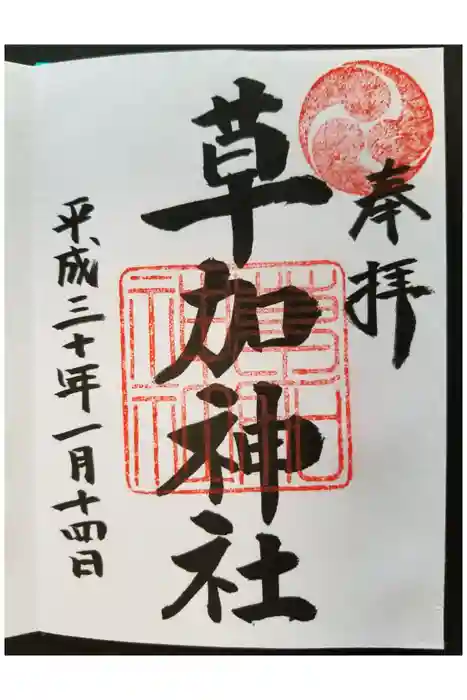 奉拝
草加神社
平成三十年一月十四日
草加神社